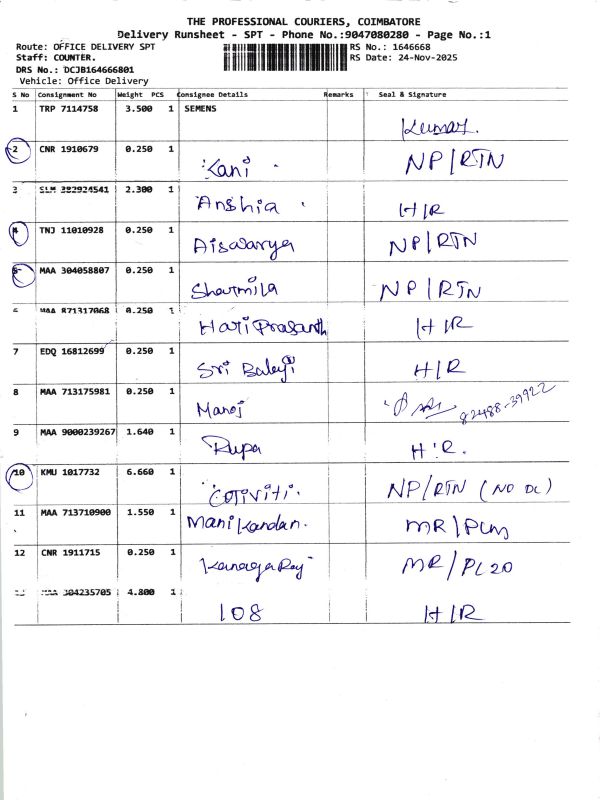 THE PROFESSIONAL COURIERS, COIMBATORE
Delivery Runsheet - SPT - Phone No.:9047080280 - Page No.:1
Route: OFFICE DELIVERY SPT RS No.: 1646668
Staff: COUNTER. RS Date: 24-Nov-2025
DRS No.: DCJB164666801
Vehicle: Office Delivery
S No Consignment No Weight PCS Consignee Details Remarks Seal & Signature
1 TRP 7114758 3.500 1 SEMENS
Kumar.
2 CNR 1910679 0.250 1
Kani NP/RTN
3 SLM 382924541 2.300 1
Anshia H/R
4 TNJ 11010928 0.250 1
Aiswarya NP/RTN
5 MAA 304058807 0.250 1
Sharmila NP/RTN
6 MAA 871317068 0.250 1
Hari Prasanth H/R
7 EDQ 16812699 0.250 1
Sri Balaji H/R
8 MAA 713175981 0.250 1
Manoj 82488-39922
9 MAA 9000239267 1.640 1
Rupa H'R.
10 KMU 1017732 6.660 1
COTIVITI. NP/RTN (NO DC)
11 MAA 713710900 1.550 1
Manikandan. MR/PLM
12 CNR 1911715 0.250 1
KanagaRaj MR/PL20
MAA 304235705 4.800 1
108 H/R